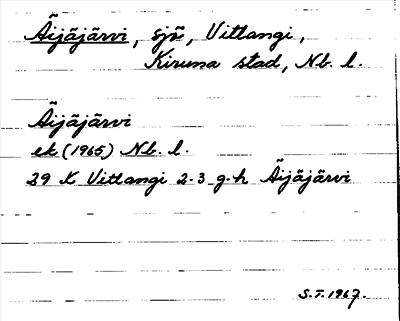 Äijäjärvi, sjö, Vittangi,
Kiruna stad, Nb. l.
Äijäjärvi
ek (1965) Nb. l.
29 K Vittangi 2-3 g-h Äijäjärvi
S.T. 1967.